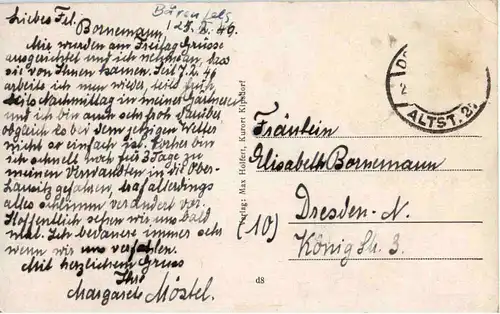 Bärenfels
Liebes Frl. 25.2.46.
Bornemann,
Mir wurden am Freitag Grüsse
ausgerichtet und ich nehme an, dass
sie von Ihnen kamen. Seit 7.2.46
arbeite ich nun wieder, teils früh
teils Nachmittag in meiner Gärtnerei
und ich bin auch sehr froh darüber
obgleich es bei dem jetzigen Wetter
nicht so einfach ist. Vorher bin
ich schnell noch für 3 Tage zu
meinen Verwandten in die Ober-
Lausitz gefahren, traf allerdings
alles schlimm verändert vor.
Hoffentlich sehen wir uns bald
mal. Ich bedauere immer sehr
wenn wir uns verfehlen.
Mit herzlichem Gruss
Ihre
Margarete Möstel.
Verlag: Max Holfert, Kurort Kipsdorf
d8
ALTST. 2
Fräulein
Elisabeth Bornemann
Dresden-N.
(10) König Str. 3.